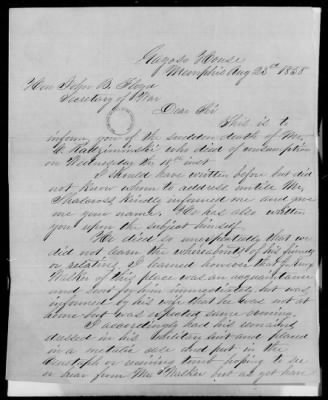 Gayoso House
Memphis Aug 23rd 1858
Hon John B. Floyd
Secretary of War
Dear Sir
This is to
inform you of the sudden death of Mr.
Radziminski who died of consumption
on Wednesday the 18th inst
I should have written before but did
not know whom to address untill Mr.
kindly informed me and gave
me your name. He has also written
you upon the subject himself.
He died so unexpectedly that we
did not learn the whereabouts of his friends
or relatives, I learned however that
Walker of this place was an acquaintance
and sent for him immediately but was
informed by his wife that he was not at
home but was expected same evening.
I accordingly had his remains
dressed in his Military suit and placed
in a metalic case and put in the
or receiving tomb hoping to see
or hear from Mr. Walker but as yet have